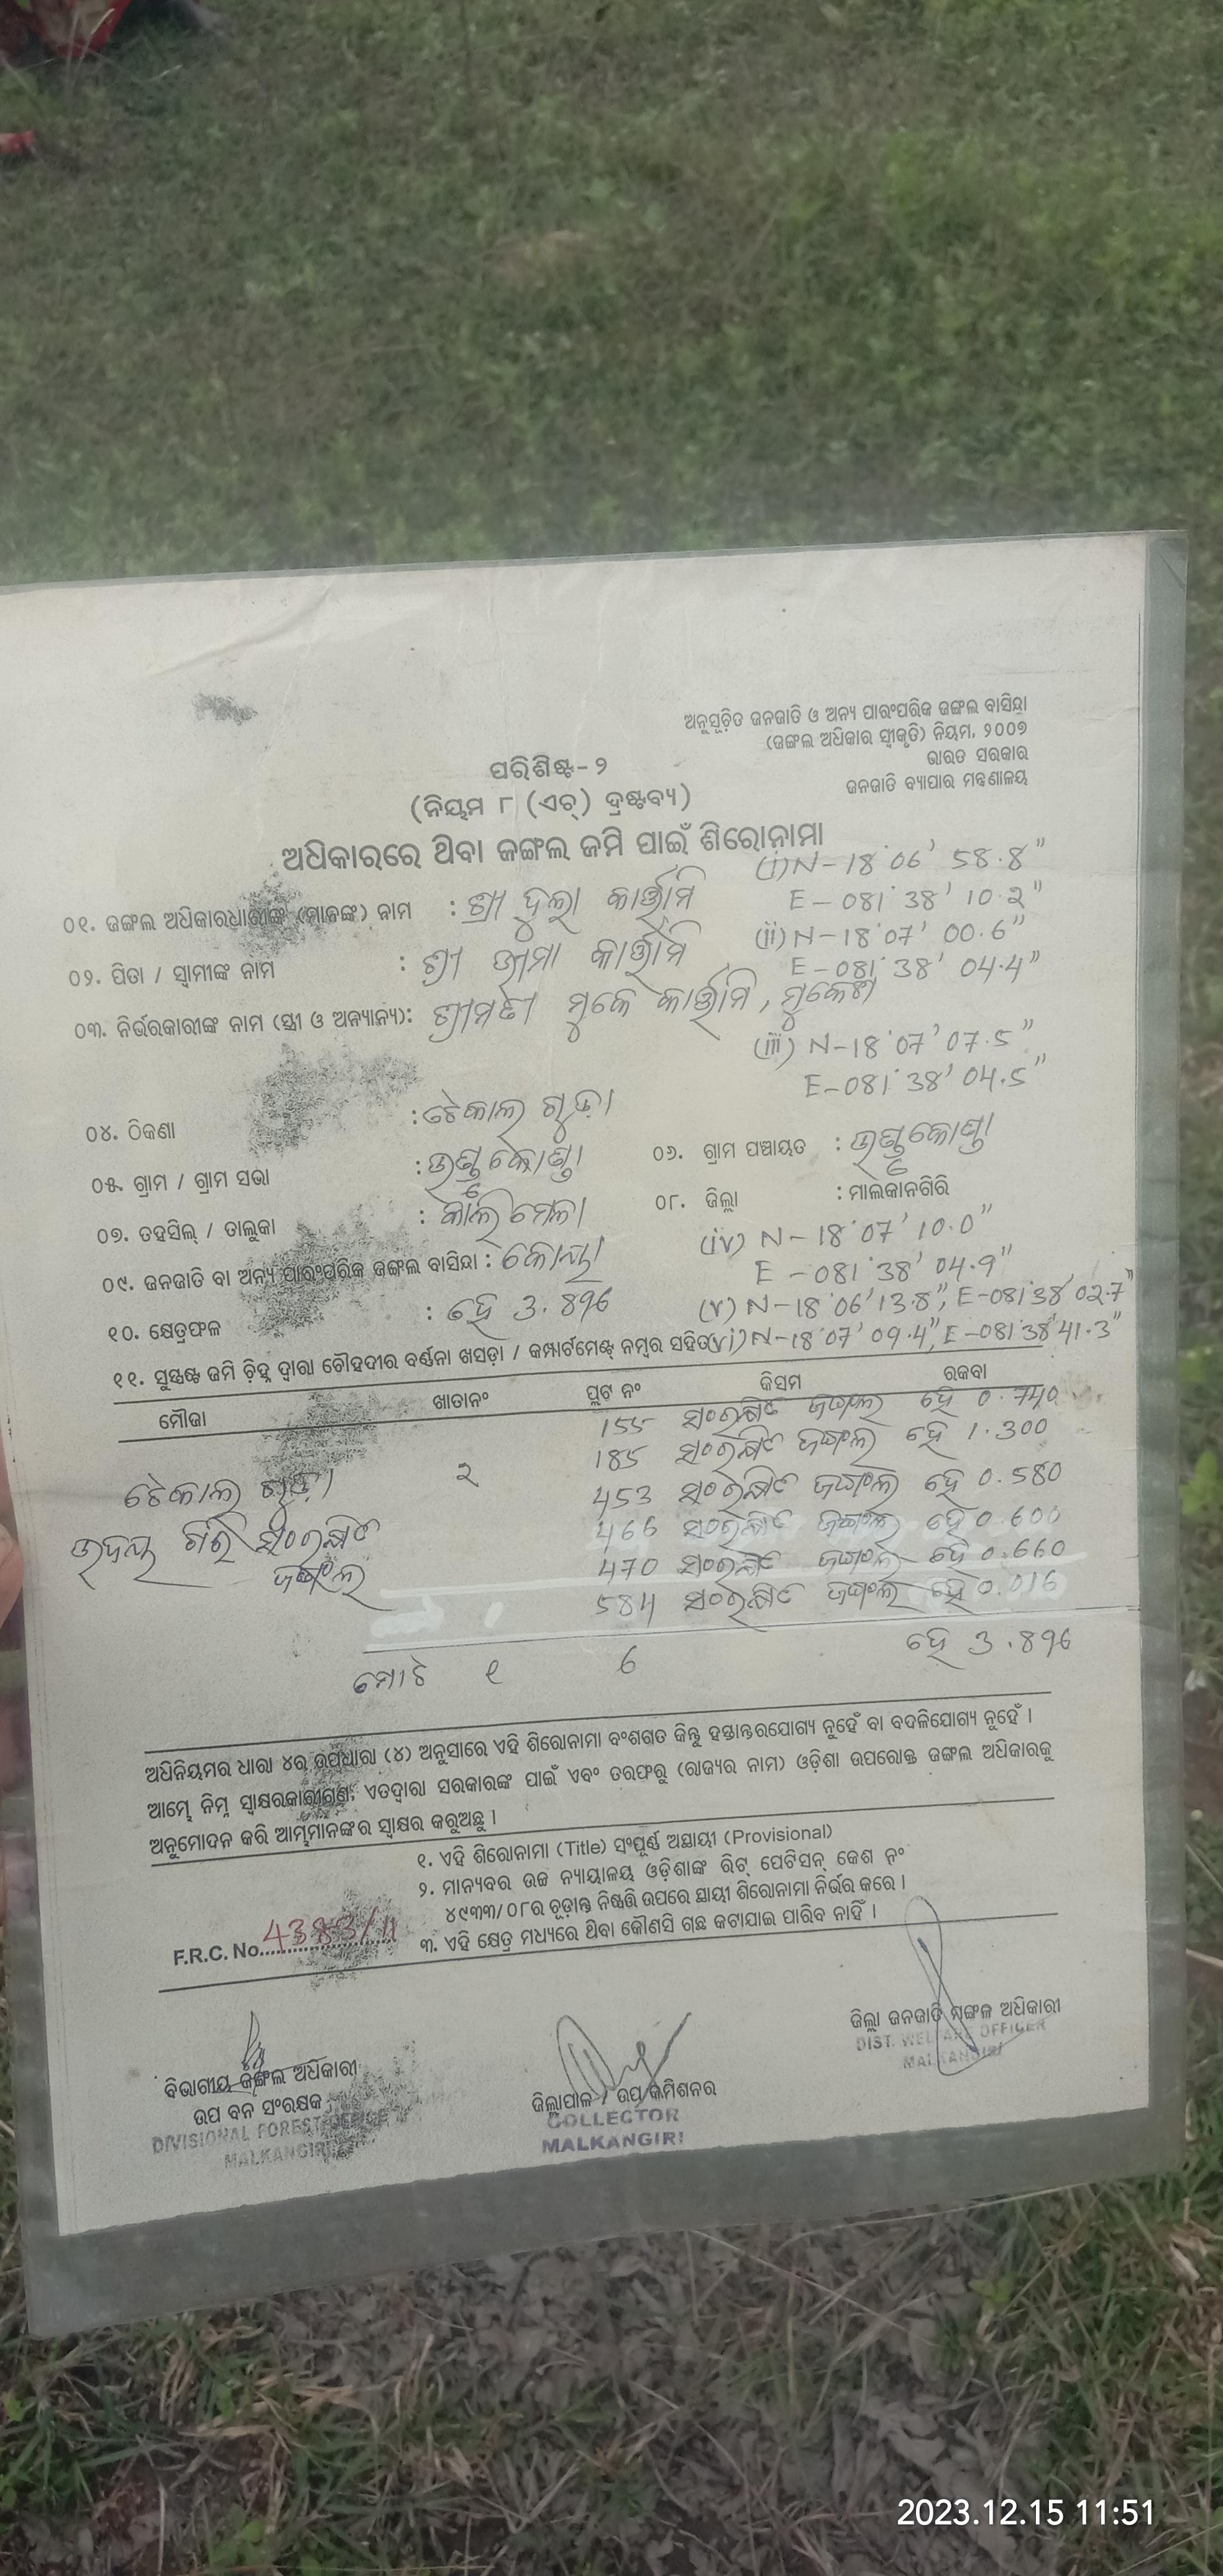 ଅନୁସୂଚିତ ଜନଜାତି ଓ ଅନ୍ୟ ପାରଂପରିକ ଜଙ୍ଗଲ ବାସିନ୍ଦା
(ଜଙ୍ଗଲ ଅଧିକାର ସ୍ୱୀକୃତି) ନିୟମ, ୨୦୦୭
ଭାରତ ସରକାର
ଜନଜାତି ବ୍ୟାପାର ମନ୍ତ୍ରଣାଳୟ
ପରିଶିଷ୍ଟ-୨
(ନିୟମ ୮ (ଏଚ୍) ଦ୍ରଷ୍ଟବ୍ୟ)
ଅଧିକାରରେ ଥିବା ଜଙ୍ଗଲ ଜମି ପାଇଁ ଶିରୋନାମା
(i) N-18°06' 58.8"
E-081°38' 10.2"
୦୧. ଜଙ୍ଗଲ ଅଧିକାରଧାରୀଙ୍କ (ମାନଙ୍କ) ନାମ : ଶ୍ରୀ ଦୁଲା କାର୍ତ୍ତାମି
(ii) N-18°07' 00.6"
E-081°38' 04.4"
୦୨. ପିତା / ସ୍ୱାମୀଙ୍କ ନାମ : ଶ୍ରୀ ଭୀମା କାର୍ତ୍ତାମି
୦୩. ନିର୍ଭରକାରୀଙ୍କ ନାମ (ସ୍ତ୍ରୀ ଓ ଅନ୍ୟାନ୍ୟ): ଶ୍ରୀମତୀ ମୁକେ କାର୍ତ୍ତାମି,
(iii) N-18°07' 07.5"
E-081°38' 04.5"
୦୪. ଠିକଣା : ଟେକାଲ ଗୁଡ଼ା
୦୫. ଗ୍ରାମ / ଗ୍ରାମ ସଭା :
୦୬. ଗ୍ରାମ ପଞ୍ଚାୟତ :
୦୭. ତହସିଲ୍ / ତାଲୁକା : କାଲିମେଳା
୦୮. ଜିଲ୍ଲା : ମାଲକାନଗିରି
(iv) N-18°07' 10.0"
E-081°38' 04.9"
୦୯. ଜନଜାତି ବା ଅନ୍ୟ ପାରଂପରିକ ଜଙ୍ଗଲ ବାସିନ୍ଦା : କୋୟା
(v) N-18°06'13.8", E-081°38'02.7"
୧୦. କ୍ଷେତ୍ରଫଳ : ହେ 3.896
(vi) N-18°07' 09.4", E-081°38'41.3"
୧୧. ସୁସ୍ପଷ୍ଟ ଜମି ଚିହ୍ନ ଦ୍ୱାରା ଚୌହଦୀର ବର୍ଣ୍ଣନା ଖସଡ଼ା / କମ୍ପାର୍ଟମେଣ୍ଟ୍ ନମ୍ବର ସହିତ
ମୌଜା ଖାତାନଂ ପ୍ଲଟ ନଂ କିସମ ରକବା
155 ସଂରକ୍ଷିତ ଜଙ୍ଗଲ ହେ 0.740
185 ସଂରକ୍ଷିତ ଜଙ୍ଗଲ ହେ 1.300
ଟେକାଲ ଗୁଡ଼ା ୨ 453 ସଂରକ୍ଷିତ ଜଙ୍ଗଲ ହେ 0.580
ଉଦୟ ଗିରି ସଂରକ୍ଷିତ 466 ସଂରକ୍ଷିତ ଜଙ୍ଗଲ ହେ 0.600
ଜଙ୍ଗଲ 470 ସଂରକ୍ଷିତ ଜଙ୍ଗଲ ହେ 0.660
584 ସଂରକ୍ଷିତ ଜଙ୍ଗଲ ହେ 0.016
ମୋଟ ୧ 6 ହେ 3.896
ଅଧିନିୟମର ଧାରା ୪ର ଉପଧାରା (୪) ଅନୁସାରେ ଏହି ଶିରୋନାମା ବଂଶଗତ କିନ୍ତୁ ହସ୍ତାନ୍ତରଯୋଗ୍ୟ ନୁହେଁ ବା ବଦଳିଯୋଗ୍ୟ ନୁହେଁ ।
ଆମ୍ଭେ ନିମ୍ନ ସ୍ୱାକ୍ଷରକାରୀଗଣ, ଏତଦ୍ୱାରା ସରକାରଙ୍କ ପାଇଁ ଏବଂ ତରଫରୁ (ରାଜ୍ୟର ନାମ) ଓଡ଼ିଶା ଉପରୋକ୍ତ ଜଙ୍ଗଲ ଅଧିକାରକୁ
ଅନୁମୋଦନ କରି ଆମ୍ଭମାନଙ୍କର ସ୍ୱାକ୍ଷର କରୁଅଛୁ ।
୧. ଏହି ଶିରୋନାମା (Title) ସଂପୂର୍ଣ୍ଣ ଅସ୍ଥାୟୀ (Provisional)
୨. ମାନ୍ୟବର ଉଚ୍ଚ ନ୍ୟାୟାଳୟ ଓଡ଼ିଶାଙ୍କ ରିଟ୍ ପେଟିସନ୍ କେଶ ନଂ
୪୯୩୩/୦୮ର ଚୂଡ଼ାନ୍ତ ନିଷ୍ପତ୍ତି ଉପରେ ସ୍ଥାୟୀ ଶିରୋନାମା ନିର୍ଭର କରେ ।
୩. ଏହି କ୍ଷେତ୍ର ମଧ୍ୟରେ ଥିବା କୌଣସି ଗଛ କଟାଯାଇ ପାରିବ ନାହିଁ ।
F.R.C. No. 4383/11
ଜିଲ୍ଲା ଜନଜାତି ମଙ୍ଗଳ ଅଧିକାରୀ
DIST. WELFARE OFFICER
MALKANGIRI
ବିଭାଗୀୟ ଜଙ୍ଗଲ ଅଧିକାରୀ
ଉପ ବନ ସଂରକ୍ଷକ
DIVISIONAL FOREST OFFICE
MALKANGIRI
ଜିଲ୍ଲାପାଳ / ଉପ କମିଶନର
COLLECTOR
MALKANGIRI
2023.12.15 11:51